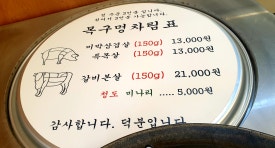 목구멍차림표
미박삼겹살 (150g) 13,000원
특목살 (150g) 13,000원
갈비본살 (150g) 21,000원
청도 미나리 ..... 5,000원
감사합니다. 덕분입니다.